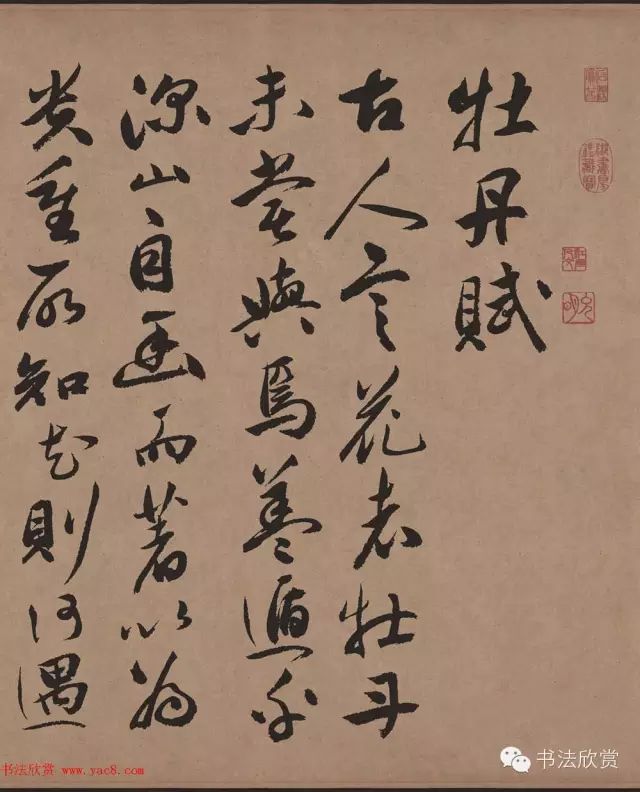 牡丹賦
古人言花者牡丹
未嘗與焉蓋遁於
深山自幽而著以為
貴重所知花則何遇
书法欣赏 www.yac8.com
书法欣赏